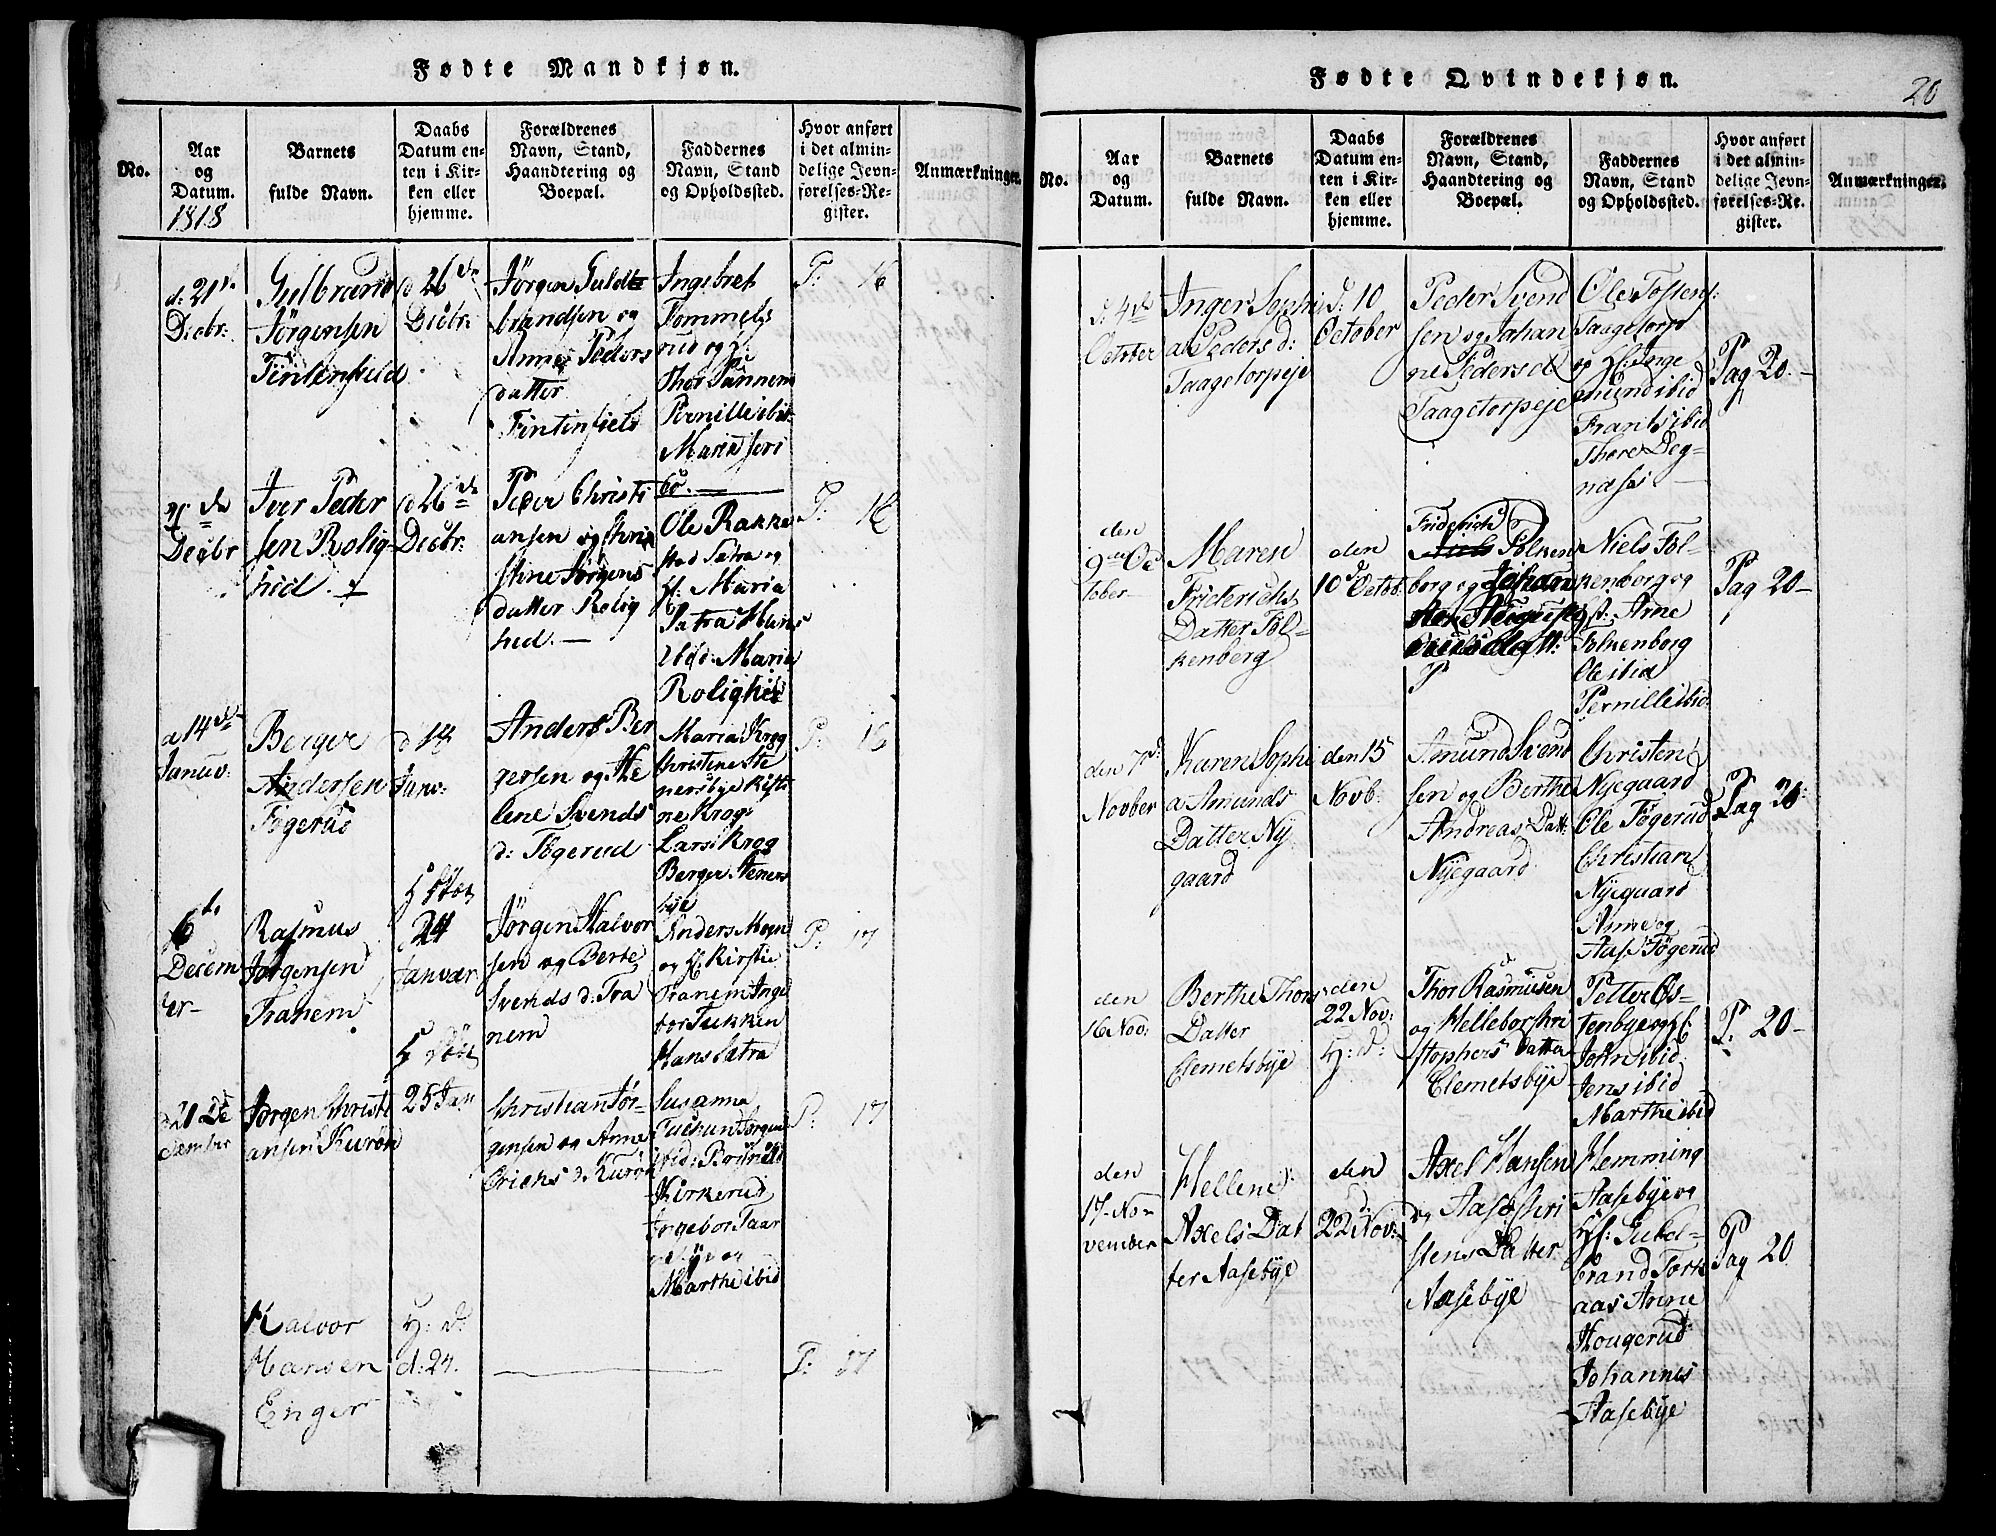 Fødte Mandkjøn.
No.
Aar
og
Datum.
1818
Barnets
fulde Navn.
Daabs
Datum en-
ten i Kir-
ken eller
hjemme.
Forældrenes
Navn, Stand,
Haandtering og
Boepæl.
Faddernes
Navn, Stand
og Opholdssted.
Hvor anført
i det almin-
delige Jevn-
førelses-Re-
gister.
Anmærkninger.
d: 21de
Decbr:
Gulbrand
Jörgensen
Tintenfield
d 26de
Decbr:
Jörgen Guld
brandsen og
Anne Peders
datter
Tintenfield
Ingebret
Tommels
rud og
Thor Sannem
Pernille ibid:
Maria
P: 16
Decbr
Iver Peder
sen Rolig
hed.
d 26de
Decbr:
Peder Christi
ansen og Chri
stine Jörgens
datter Rolig
hed.
Ole Rakke
stad Sætra og
H: Maria
Sætra
ibid: Maria
Rolighed
P:
d 14de
Januv:
Berger
Andersen
Togerud
d 14
Janv:
Anders Ber
gersen og He
lene Svends
d: Togerud
Maria Krog
Christine Ste
nersbye Kisti
ne Krog
Lars Krog
Berger Steners
bye
P: 16
6te
Decem
ber
Rasmus
Jörgensen
Tranem
H Döbt
24
Janvær
Jörgen Halvor
sen og Berte
Svends d: Tra
nem
Anders Moen
og H Kirstie
Tranem Inge
bor Tukken
Hans Sætra
P: 17
21 De
cember
Jorgen Christi
ansen Kurön
H Döbt
25 Jan
Christian Jör-
gensen og Anne
Erichs d: Kurön
Susanna
Tuckun Jörgen
ibid:
Kirkerud
Ingebor Taar
bye og
Marthe ibid
P: 17
Halvor
Hansen
Enger
H: d:
d: 24.
P: 17
Fødte Qvindekjøn.
20
No.
Aar
og
Datum.
Barnets
fulde Navn.
Daabs
Datum en-
ten i Kir-
ken eller
hjemme.
Forældrenes
Navn, Stand,
Haandtering og
Boepæl.
Faddernes
Navn, Stand
og Opholdssted.
Hvor anført
i det almin-
delige Jevn-
førelses-Re-
gister.
Anmærkninger.
d: 4de
October
Inger Sophi
a Peders d:
Taagetorpeje
d: 10
October
Peder Svend
sen og Johan
ne Peders d
Taagetorpeje
Ole Tosten
Taagetorp
og H: Inge
Amund ibid
Frants ibid
Thore Deg-
næs
Pag 20 -
den
9de Oc
tober
Maren
Friderichs
Datter Fol-
kenberg
den
10d Octob
Friderich
Folken
borg og Johan
Niels Fol-
kenborg og
H: Anne
Folkenborg
Ole ibid
Pernille ibid
Pag 20 -
den 7d:
Novber
Karen Sophi
a Amunds
Datter Ny
gaard
den 15
Novb:
Amund Svend
sen og Berthe
Andreas Datt:
Nyegaard
Christen
Nyegaard
Ole Togerud
Christian
Nyegaard
Anne og
Aase Togerud
Pag 20:
den
16 Nov:
Berthe Thors
Datter
Clemetsbye
den
22 Nov:
H: d:
Thor Rasmusen
og Hellebor Chri
stophers Datter
Clemetsbye
Petter Øs-
tenbye og H:
John ibid:
Jens ibid
Marthe ibid
P: 20 -
den
17 No-
vember
Hellene
Axels Dat
ter Aasebye
den
22 Nov:
Axel Hansen
og Aase Chri
stens Datter
Aasebye
Hemming
Aasebye og
H: Gubel-
brand Tork
aas Anne
Hougerud
Johannes
Aasebye
Pag 20